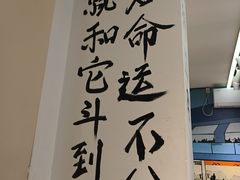 命运不
就和它斗到